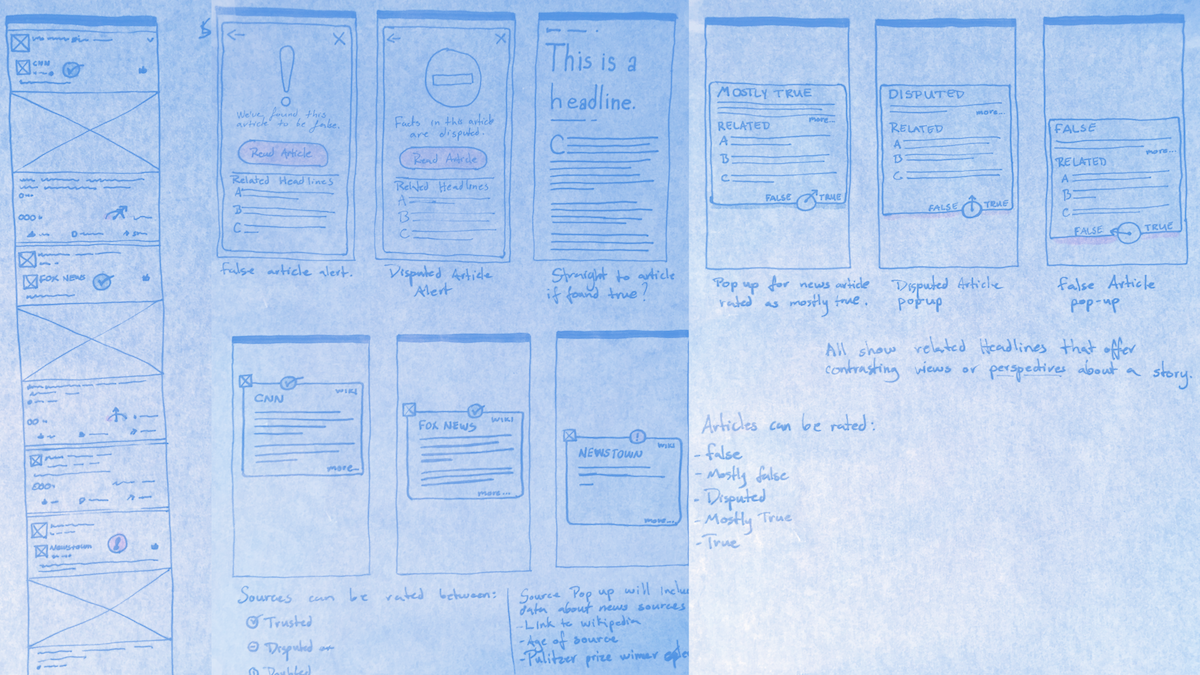 CNN
FOX NEWS
Newstown
We've found this
article to be false.
Read Article
Related Headlines
A
B
C
False article alert.
Facts in this article
are disputed.
Read Article
Related Headlines
A
B
C
Disputed Article
Alert
This is a
headline.
C
Straight to article
if found true?
WIKI
CNN
more...
WIKI
FOX NEWS
more...
WIKI
NEWSTOWN
more...
Sources can be rated between:
Trusted
Disputed
Doubted
Source Pop up will
data about news sources
-Link to wikipedia
-Age of source
-Pulitzer prize winner
MOSTLY TRUE
more...
RELATED
A
B
C
FALSE TRUE
Pop up for news article
rated as mostly true.
DISPUTED
more...
RELATED
A
B
C
FALSE TRUE
Disputed Article
popup
FALSE
more...
RELATED
A
B
C
FALSE TRUE
False Article
pop-up
All show related Headlines that offer
contrasting views or perspectives about a story.
Articles can be rated:
- False
- Mostly false
- Disputed
- Mostly True
- True